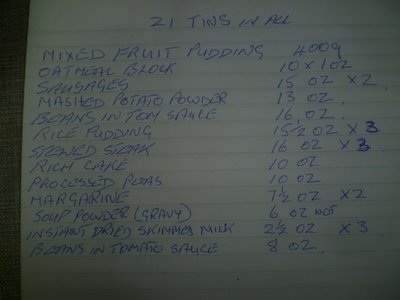 21 TINS IN ALL
MIXED FRUIT PUDDING 400g
OATMEAL BLOCK 10 X 1 OZ
SAUSAGES 15 OZ X 2
MASHED POTATO POWDER 13 OZ
BEANS IN TOM SAUCE 16 OZ
RICE PUDDING 15½ OZ X 3
STEWED STEAK 16 OZ X 3
RICH CAKE 10 OZ
PROCESSED PEAS 10 OZ
MARGARINE 7½ OZ X 2
SOUP POWDER (GRAVY) 6 OZ NET
INSTANT DRIED SKIMMED MILK 2½ OZ X 3
BEANS IN TOMATO SAUCE 8 OZ